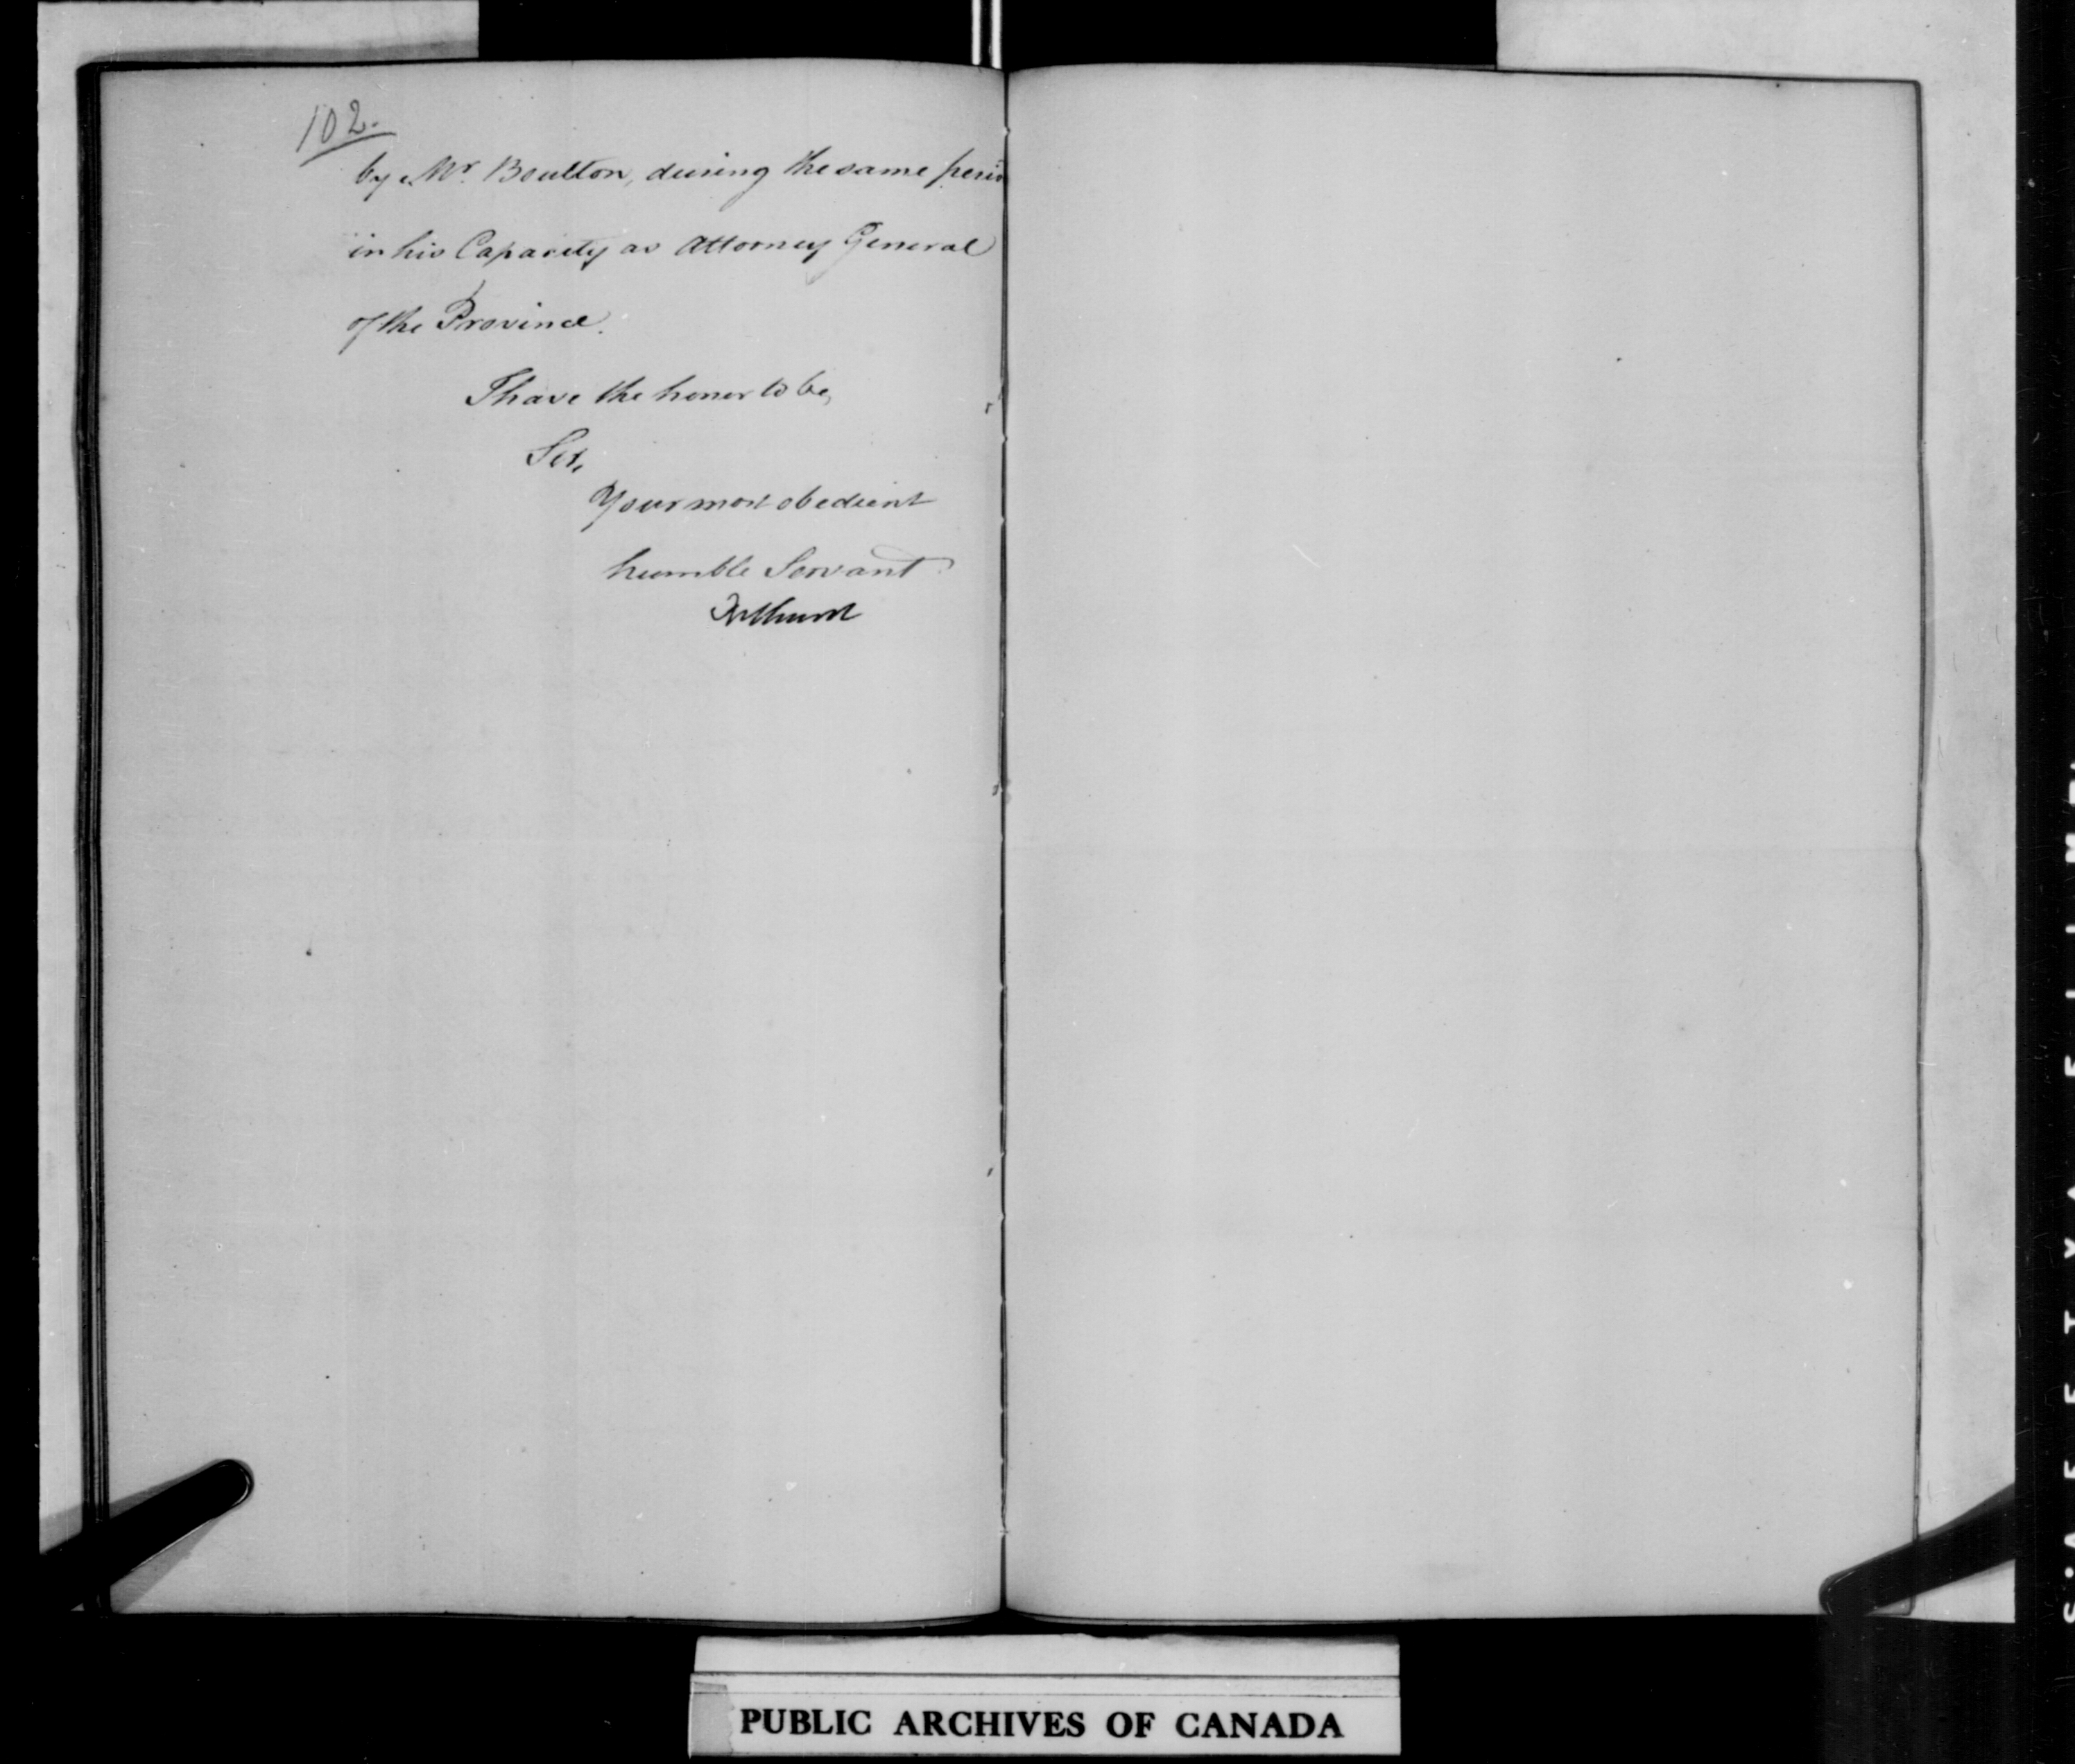 102.
by Mr. Boulton, during the same perio
in his Capacity as Attorney General
of the Province.
I have the honor to be,
Sir,
Your most obedient
humble Servant
Bathurst
PUBLIC ARCHIVES OF CANADA